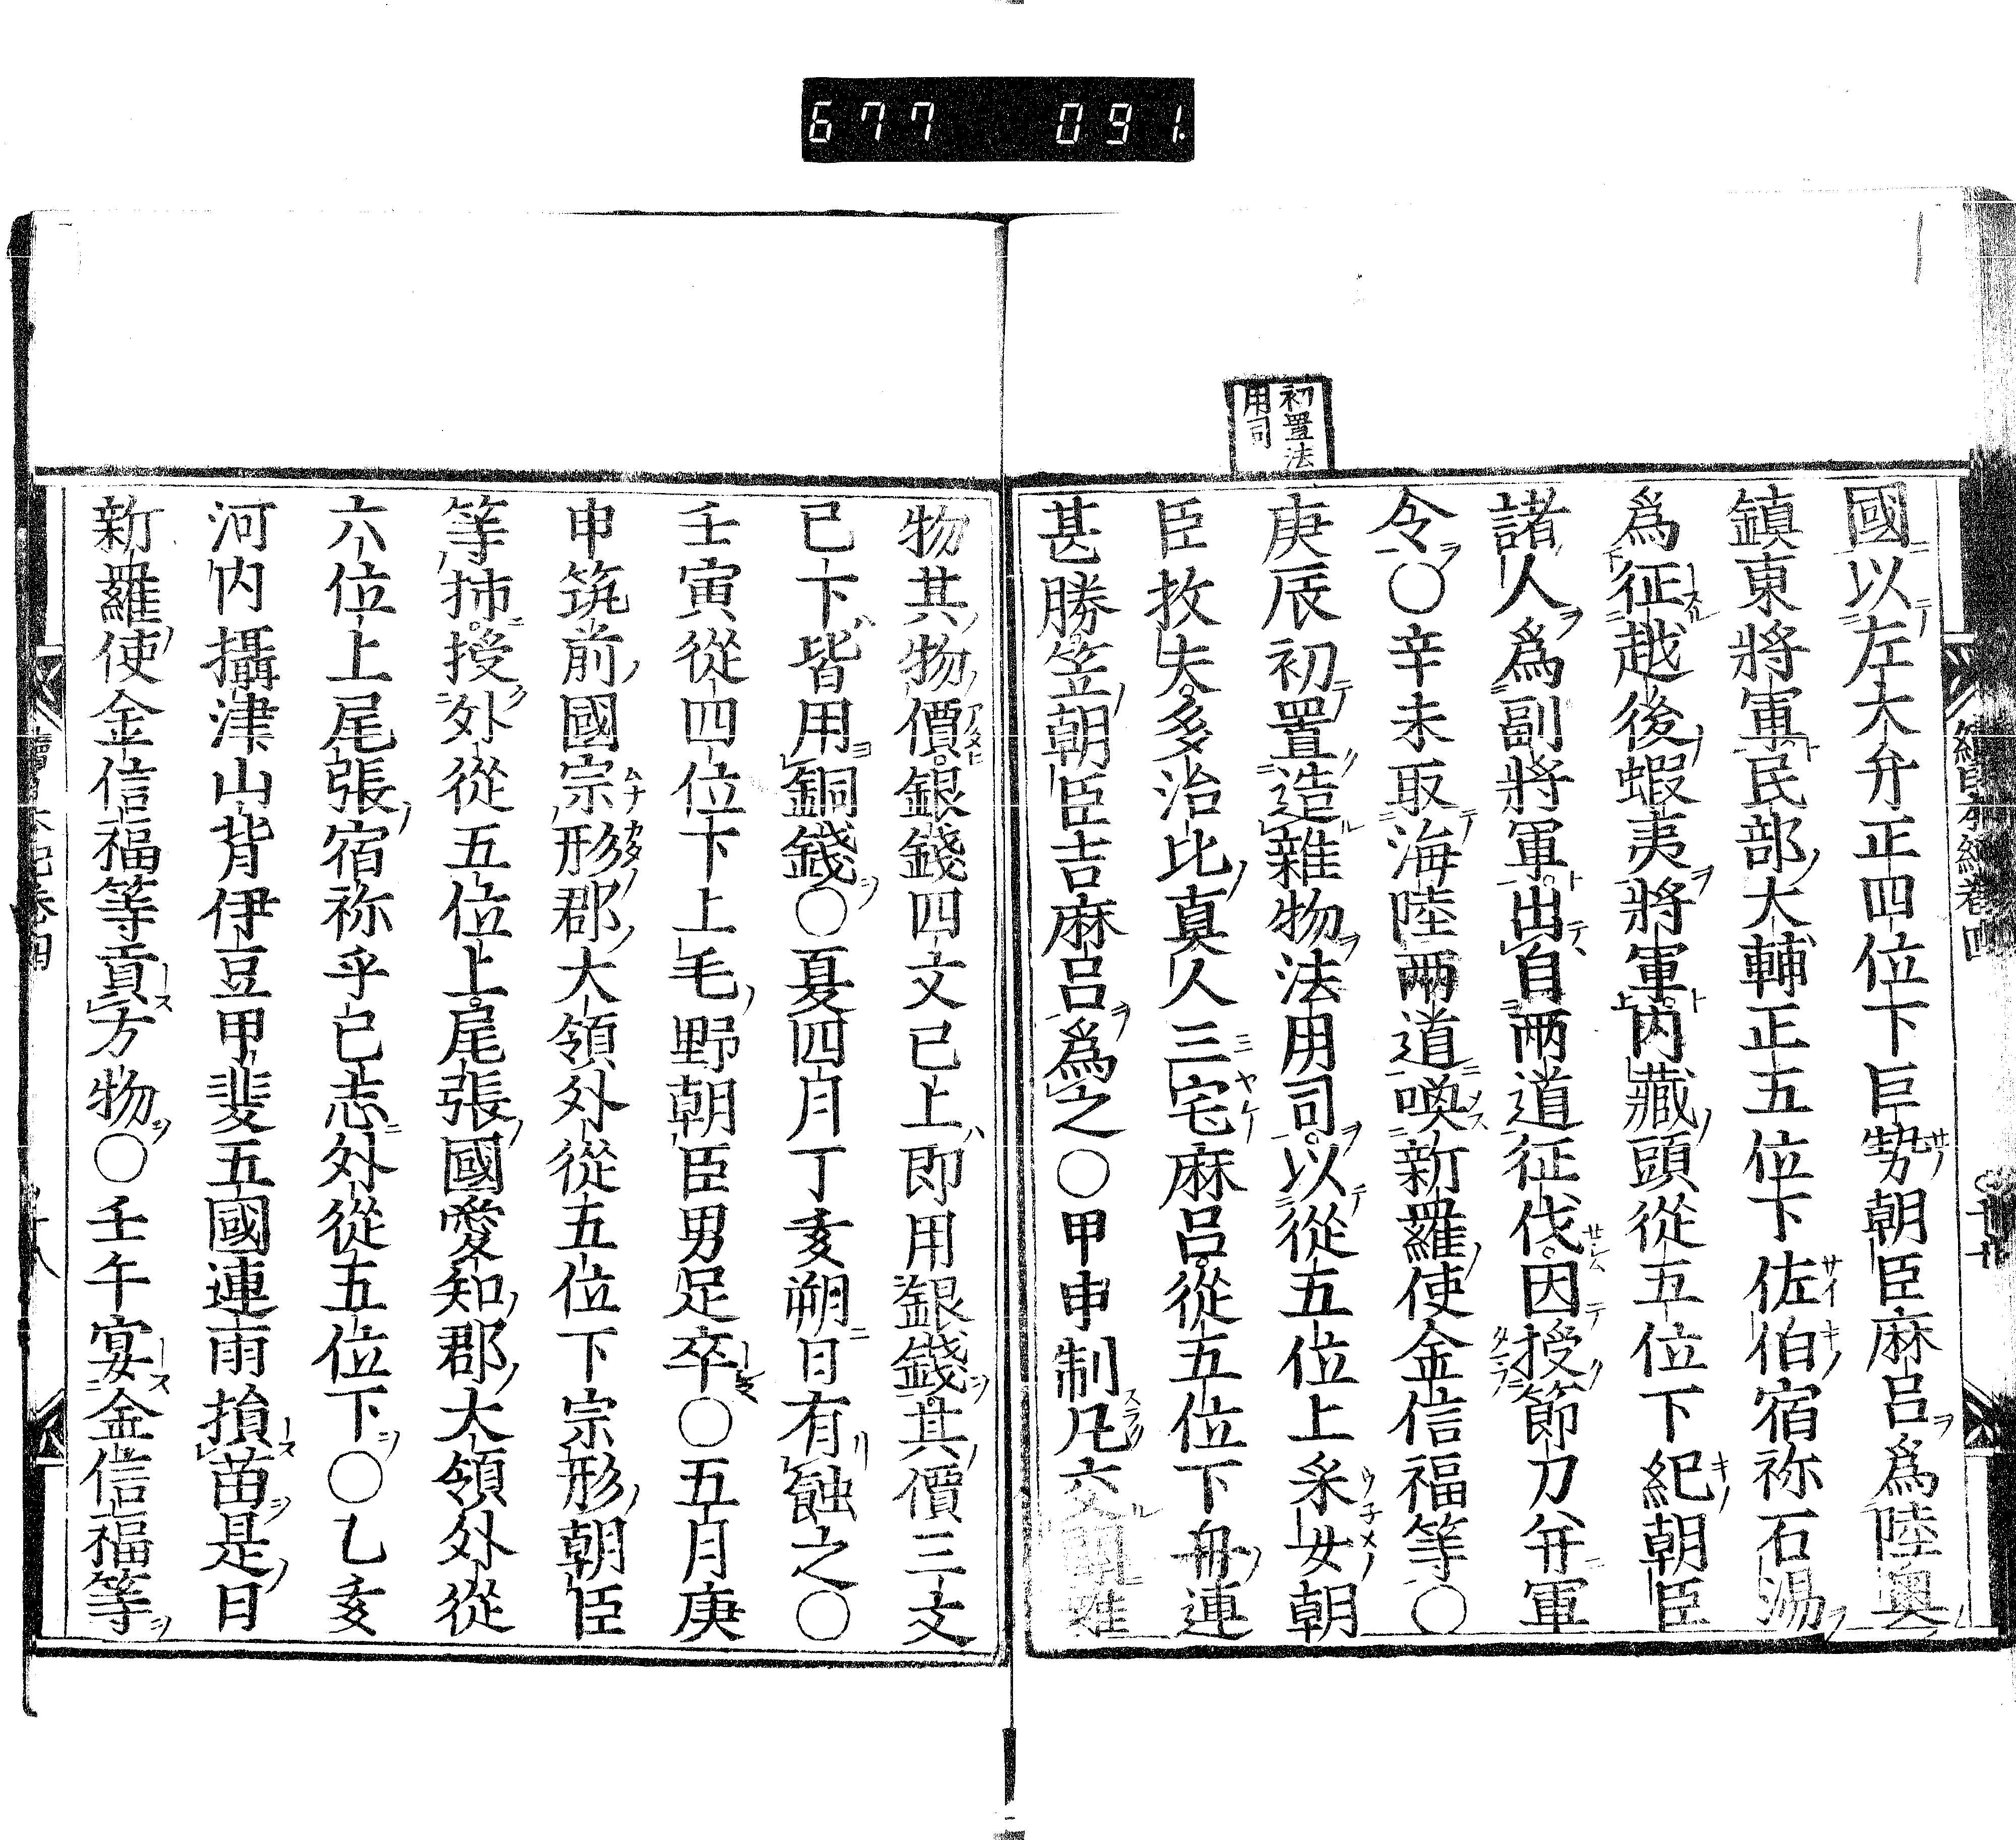 677 091
初置法
用司
國以左大弁正四位下巨勢朝臣麻呂爲陸奥
鎮東將軍民部大輔正五位下佐伯宿祢石湯
爲征越後蝦夷將軍内藏頭從五位下紀朝臣
諸人爲副將軍出自兩道征伐因授節刀并軍
令〇辛未取海陸兩道喚新羅使金信福等〇
庚辰初置造雜物法用司以從五位上采女朝
臣枚夫多治比真人三宅麻呂從五位下舟連
甚勝笠朝臣吉麻呂爲之〇甲申制凡交關雜
物其物價銀錢四文已上即用銀錢其價三文
已下皆用銅錢〇夏四月丁亥朔日有蝕之〇
壬寅從四位下上毛野朝臣男足卒〇五月庚
申筑前國宗形郡大領外從五位下宗形朝臣
等抪授外從五位上尾張國愛知郡大領外從
六位上尾張宿祢乎己志外從五位下〇乙亥
河内攝津山背伊豆甲斐五國連雨損苗是日
新羅使金信福等貢方物〇壬午宴金信福等